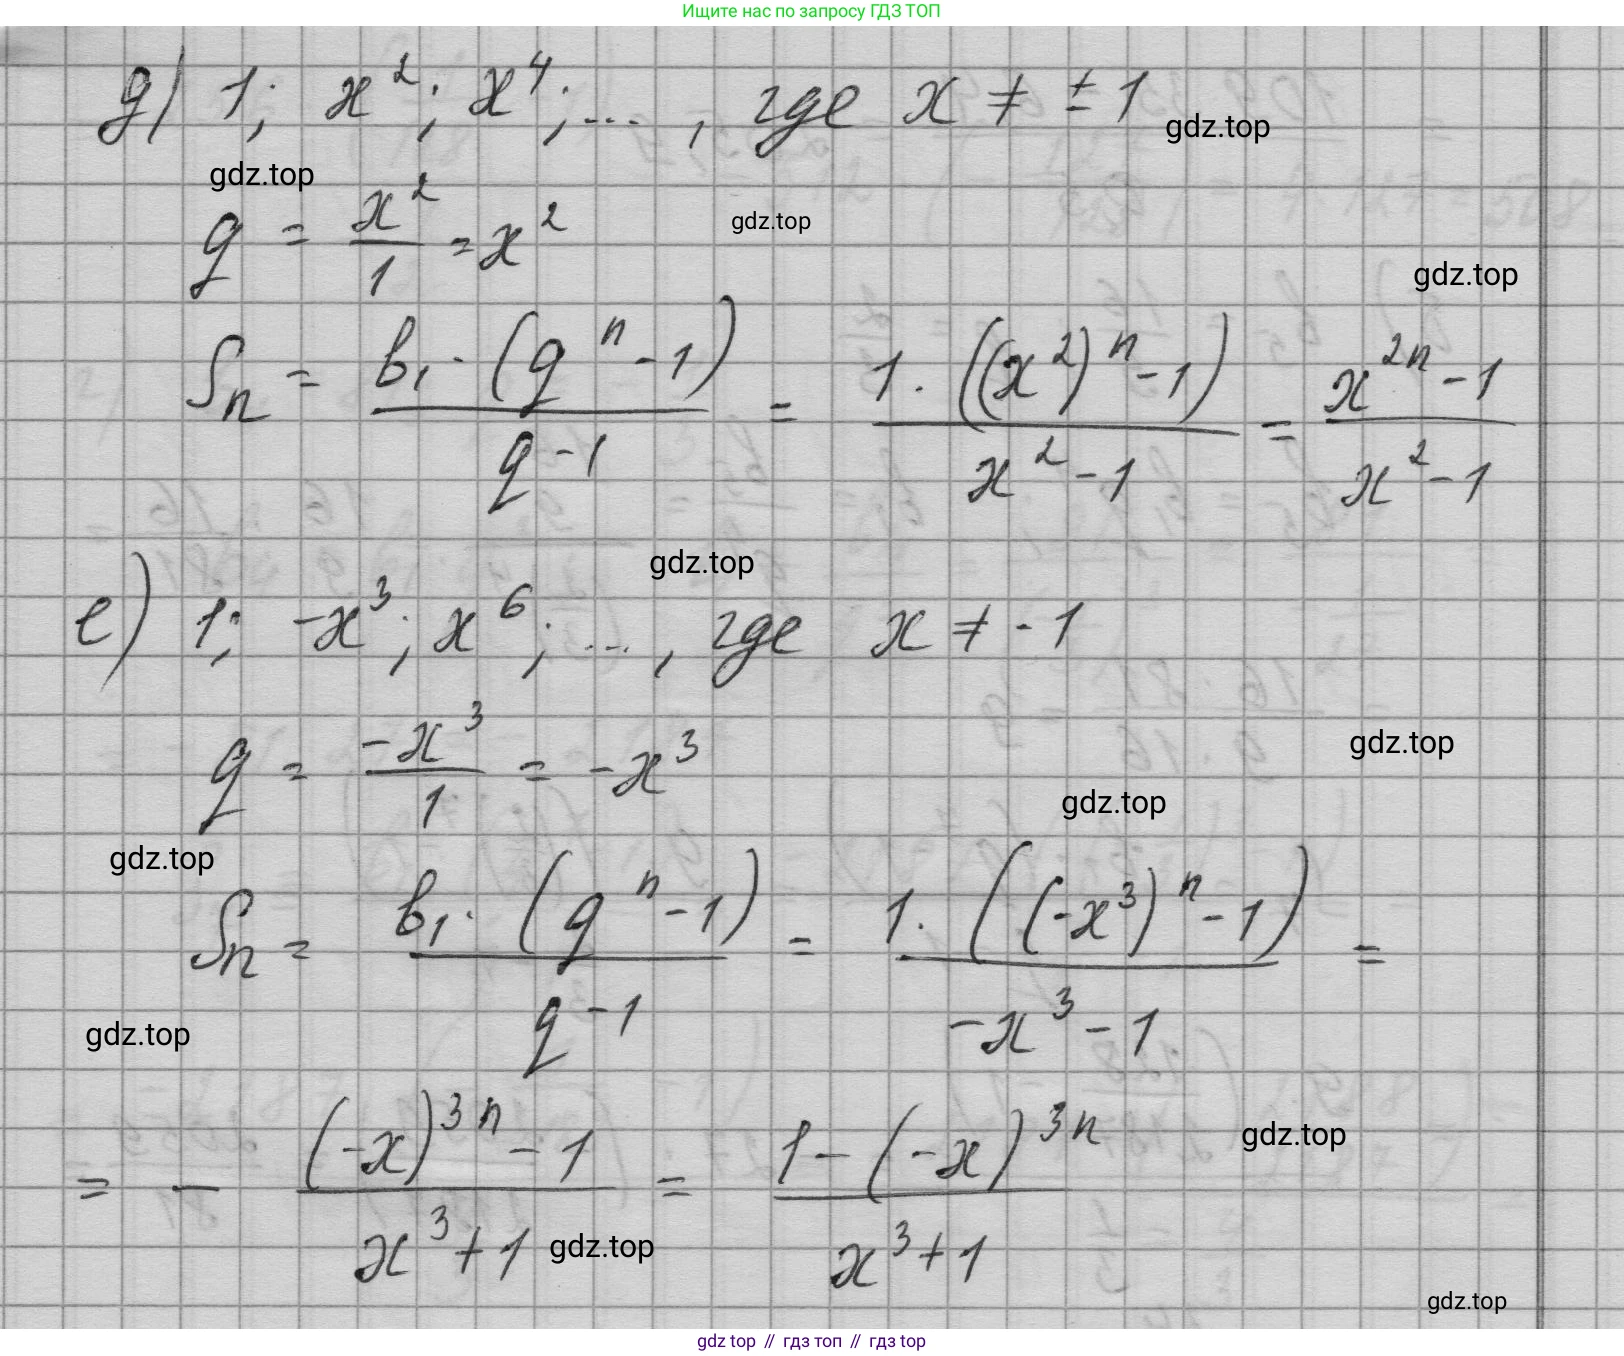 Ищите нас по запросу ГДЗ ТОП
д) 1; x²; x⁴; ... , где x ≠ ± 1
gdz.top
gdz.top
q = x²/1 = x²
gdz.top
gdz.top
Sn = b₁ · (qⁿ - 1) / (q - 1) = 1 · ((x²)ⁿ - 1) / (x² - 1) = (x²ⁿ - 1) / (x² - 1)
gdz.top
е) 1; -x³; x⁶; ... , где x ≠ - 1
q = -x³/1 = -x³
gdz.top
gdz.top
gdz.top
Sn = b₁ · (qⁿ - 1) / (q - 1) = 1 · ((-x³)ⁿ - 1) / (-x³ - 1) =
gdz.top
= - ((-x)³ⁿ - 1) / (x³ + 1) = (1 - (-x)³ⁿ) / (x³ + 1)
gdz.top
gdz.top
gdz.top
gdz top // гдз топ // gdz top